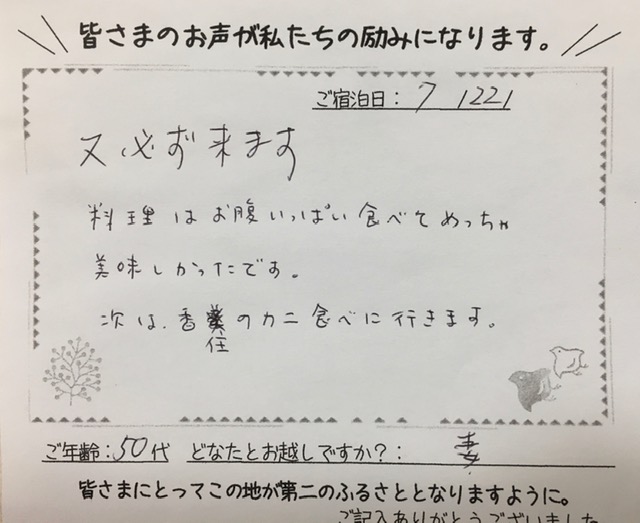 皆さまのお声が私たちの励みになります。
ご宿泊日：7 1221
又必ず来ます
料理はお腹いっぱい食べてめっちゃ
美味しかったです。
次は、香住のカニ食べに行きます。
ご年齢：50代 どなたとお越しですか？：妻
皆さまにとってこの地が第二のふるさととなりますように。
ご記入ありがとうございました